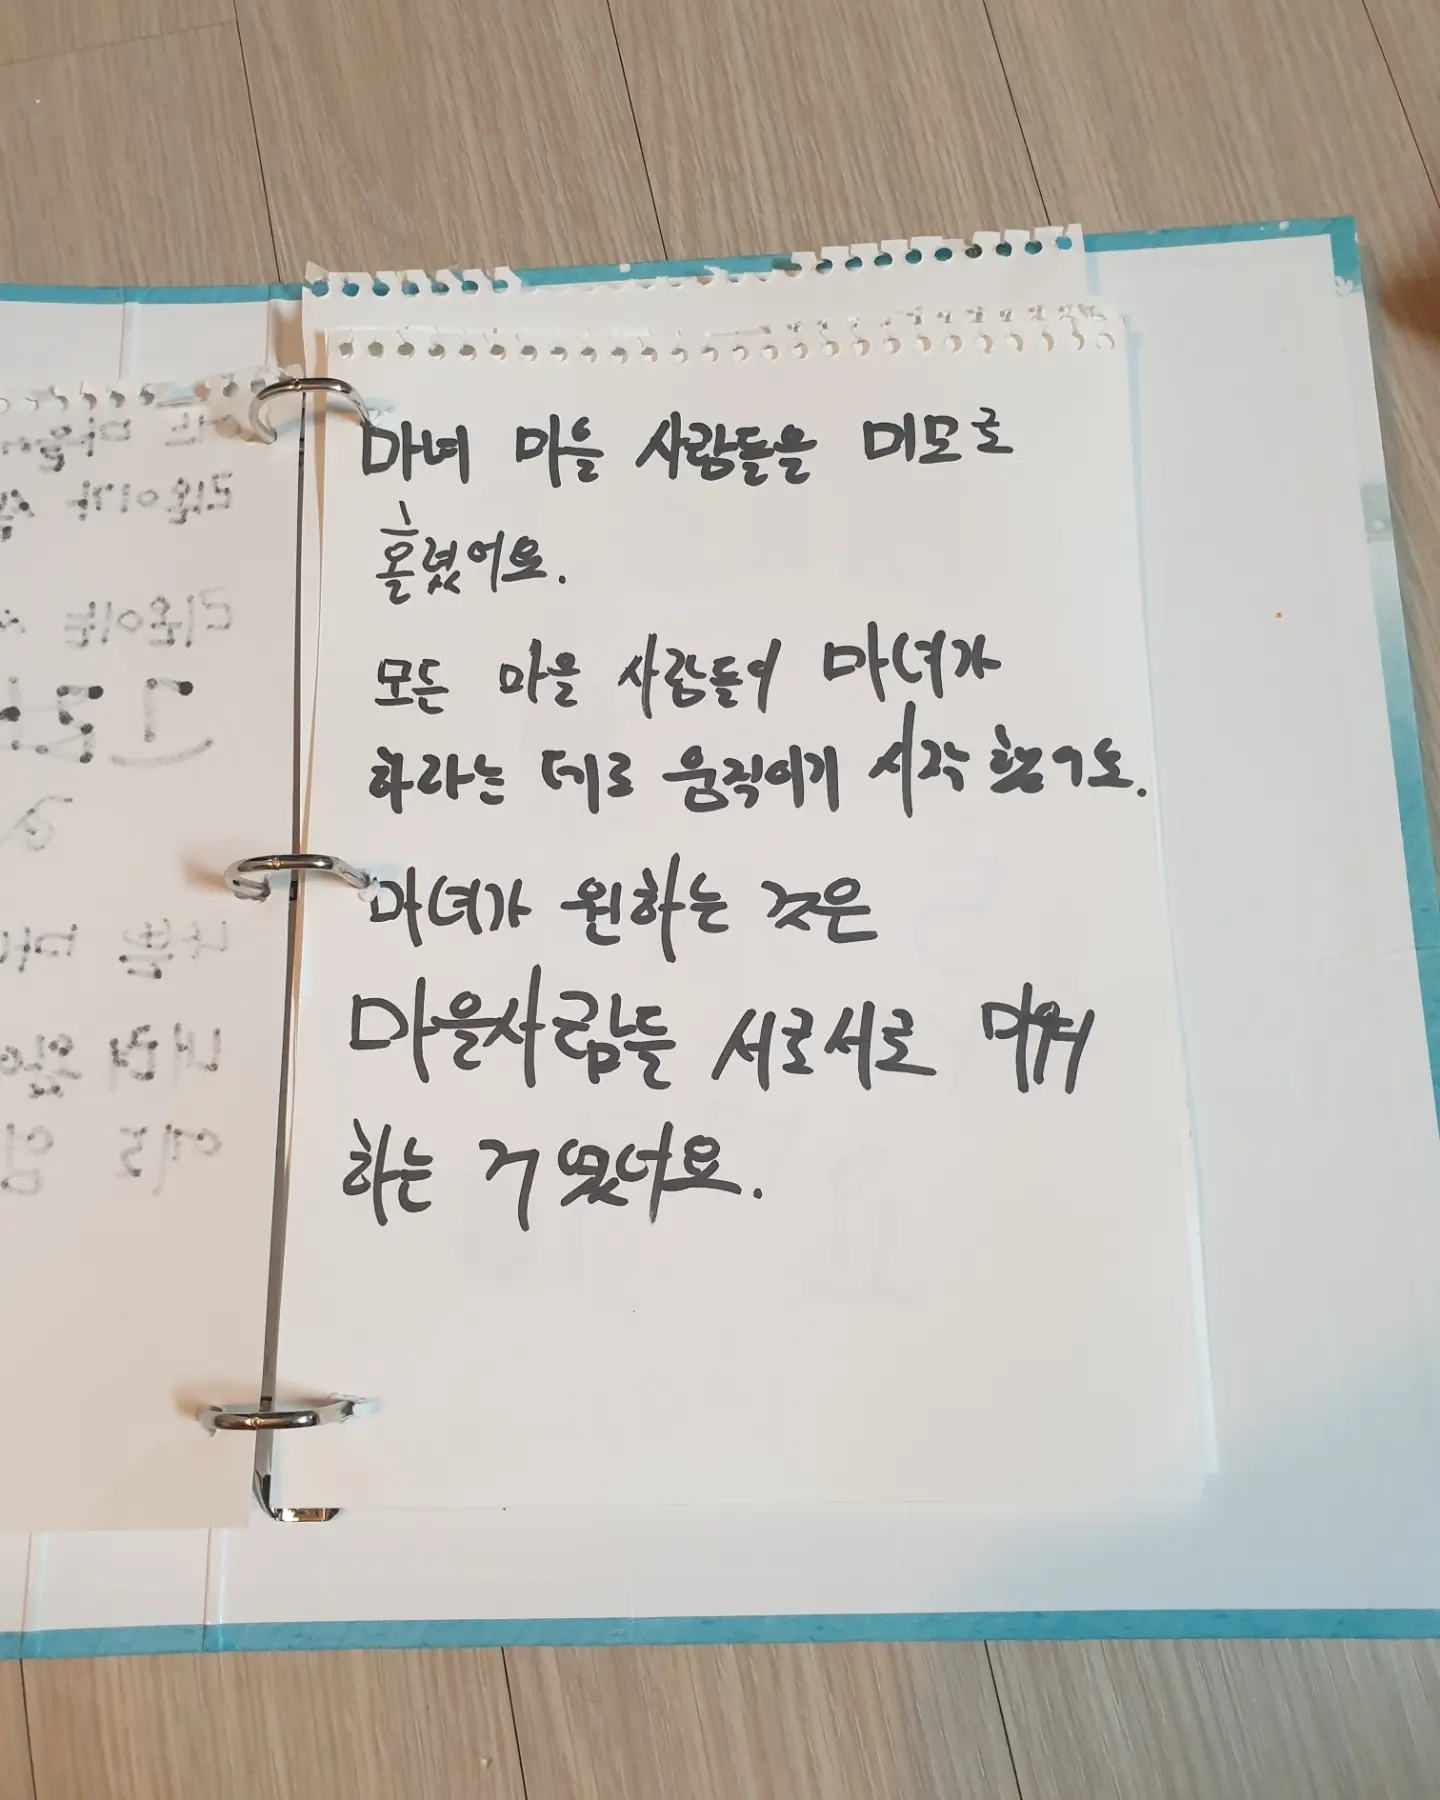 마녀 마을 사람들을 미모로
홀렸어요.
모든 마을 사람들이 마녀가
하라는 데로 움직이기 시작 했어요.
마녀가 원하는 것은
마을사람들 서로서로 미워
하는 거였어요.